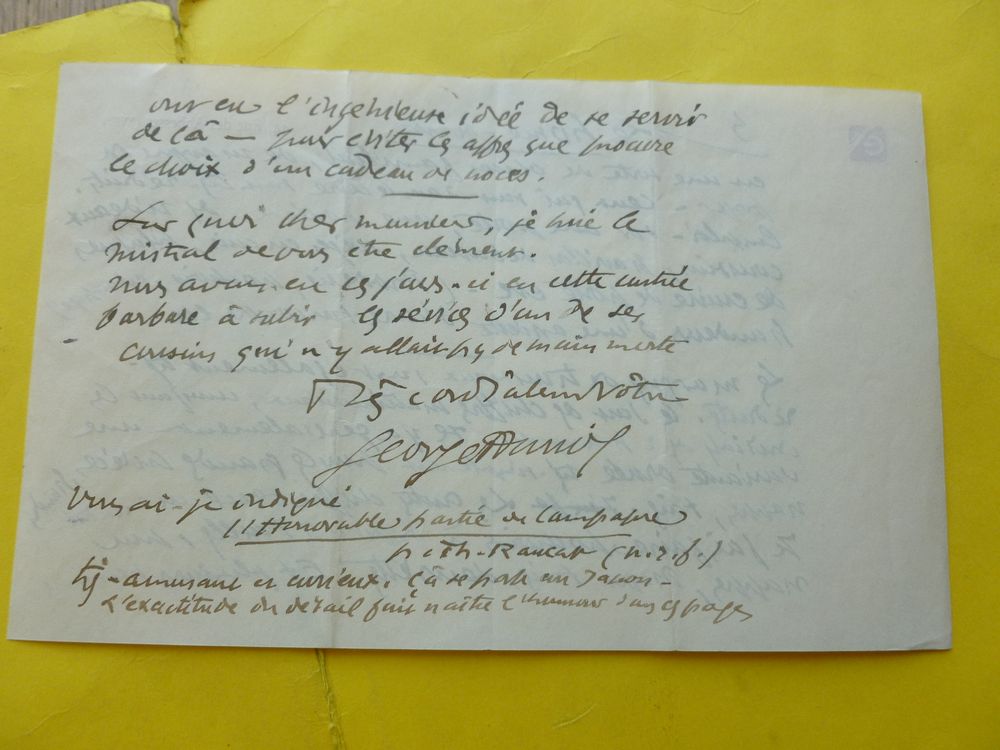 ont eu l'ingénieuse idée de se servir
de çà — pour éviter les affres que procure
le choix d'un cadeau de noces.
Sur quoi cher monsieur, je prie le
mistral de vous être clément.
nous avons eu ces jours-ci en cette contrée
barbare à subir les sévices d'un de ses
cousins qui n'y allait pas de main morte
Très cordialement vôtre
George
Vous ai-je indiqué
l'Honorable partie de Campagne
p. Th. Raucat (n.r.f.)
Très amusant et curieux. Çà se passe au Japon -
L'exactitude du détail fait naître l'humour dans ces pages